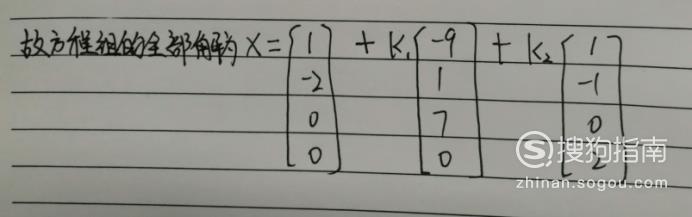 故方程组的全部解为 X = [1 -2 0 0] + K₁ [-9 1 7 0] + K₂ [1 -1 0 2]
搜狗指南
zhinan.sogou.com